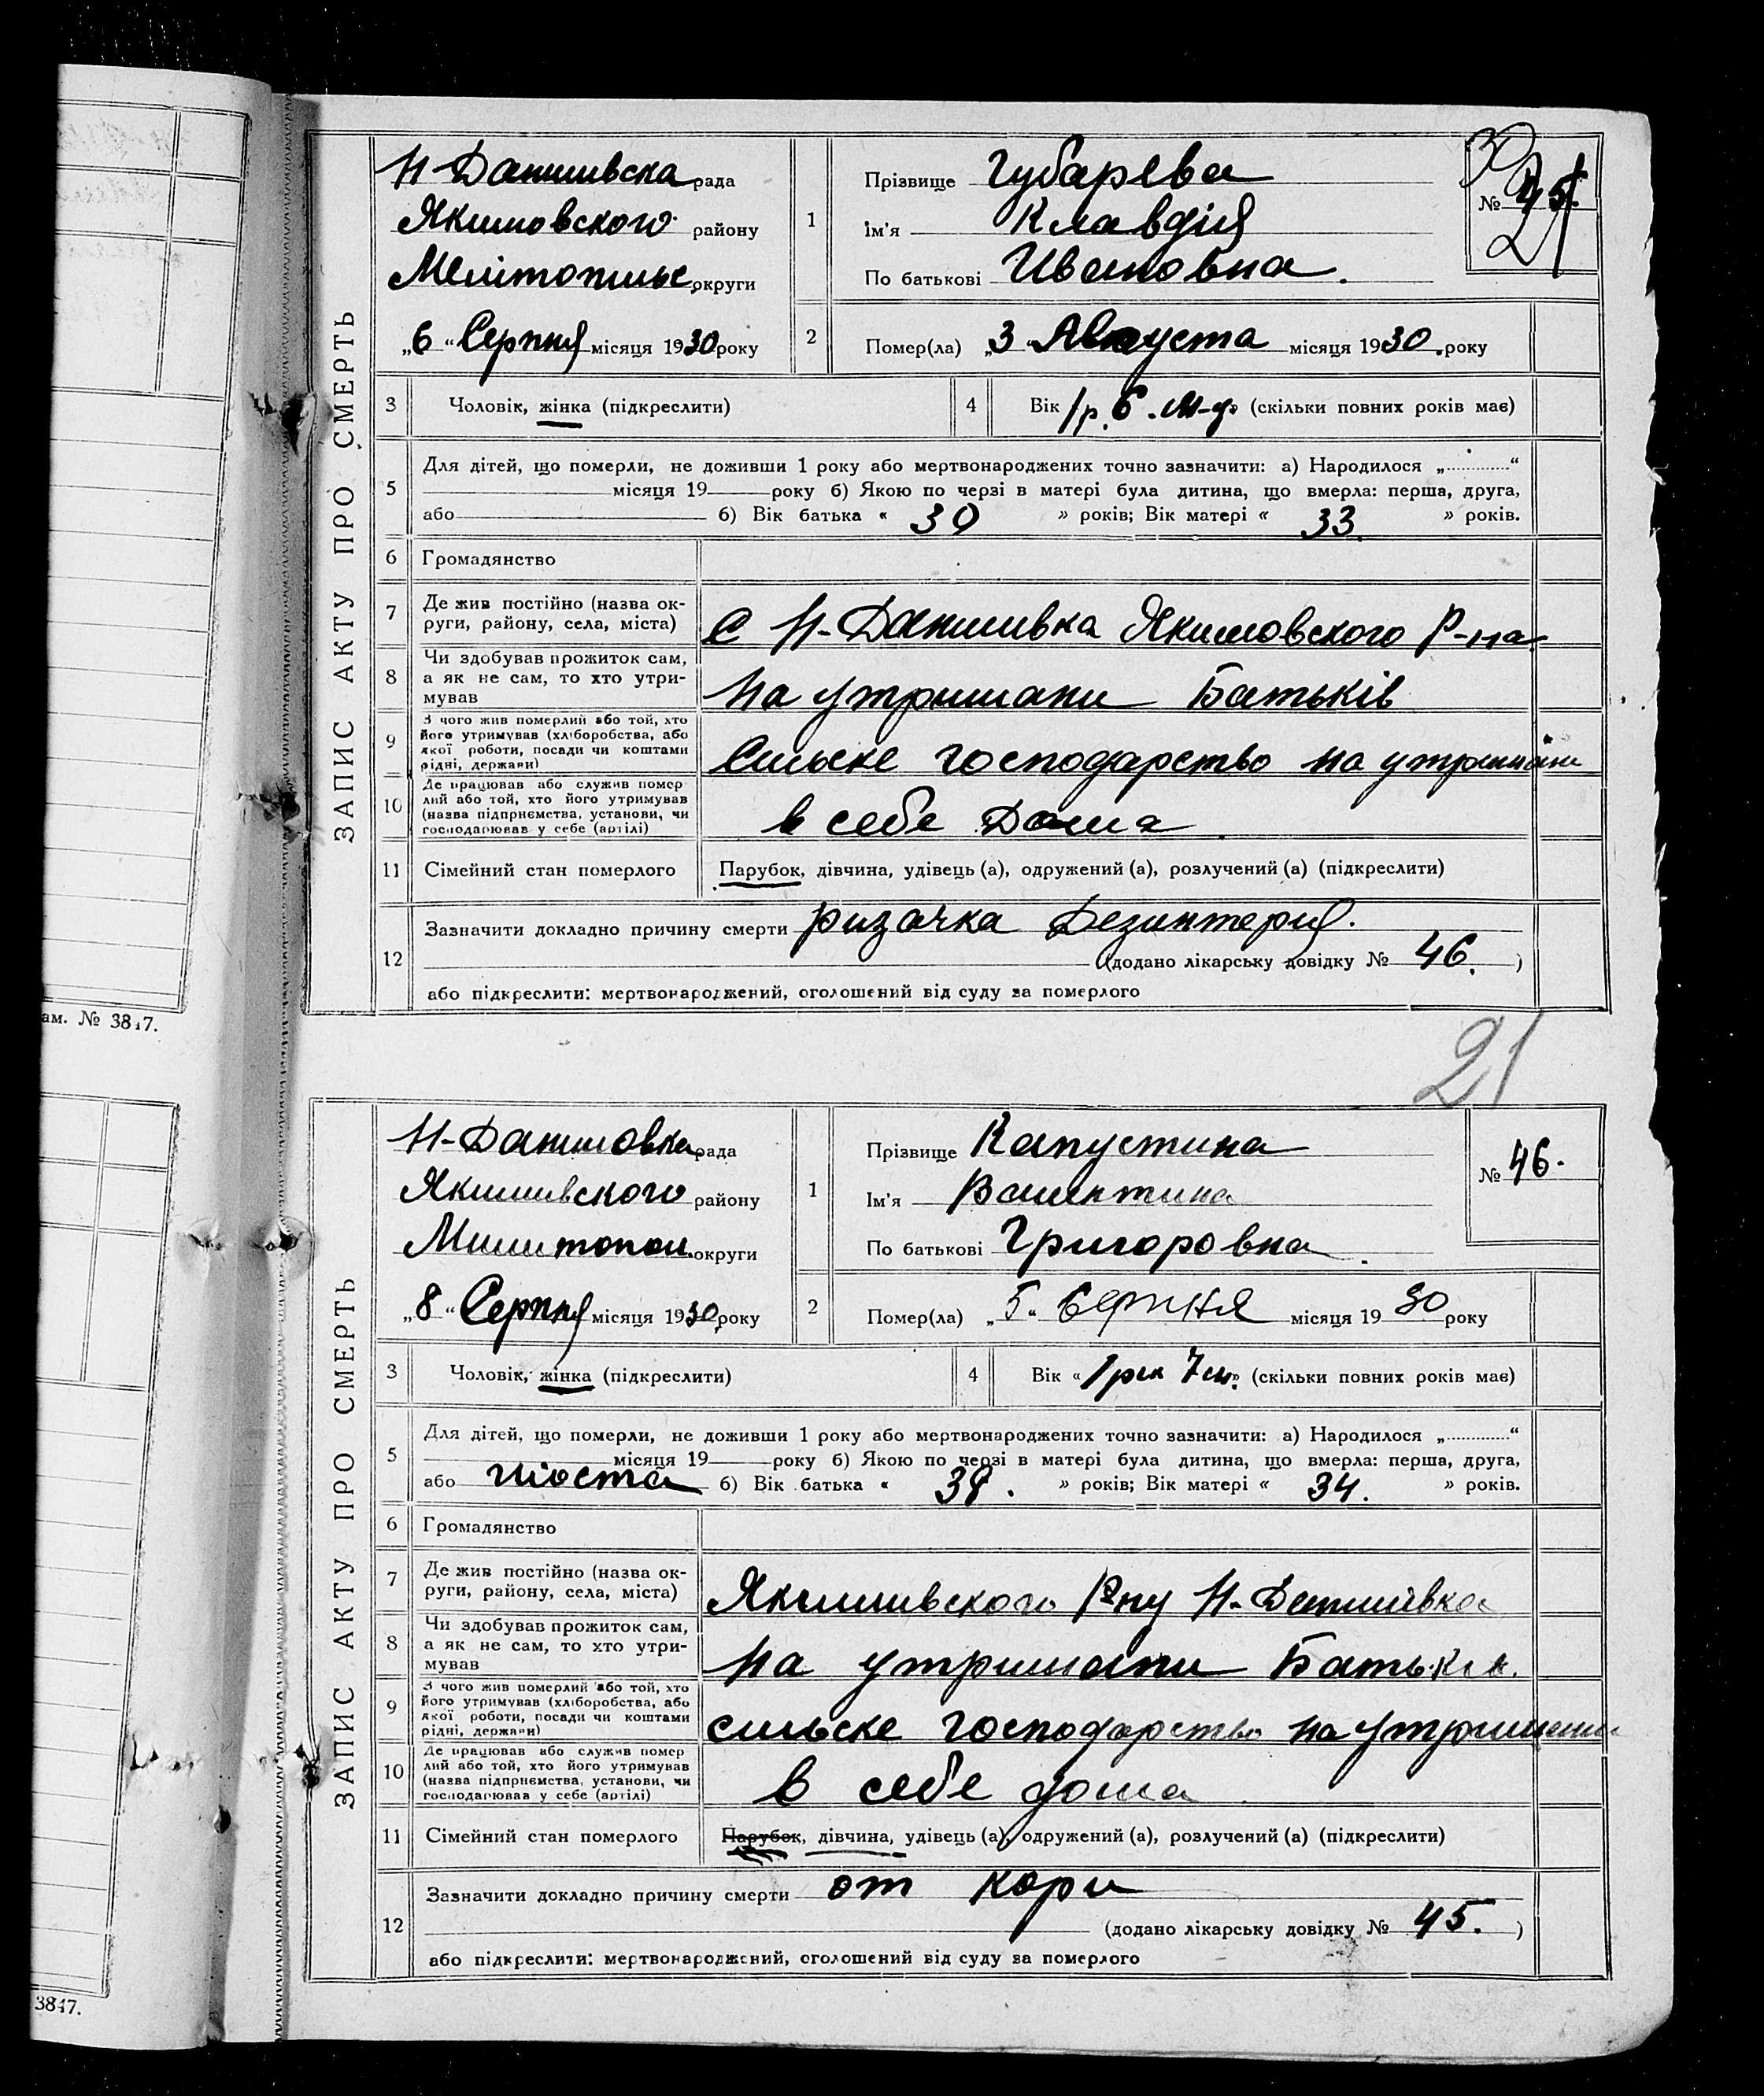 ЗАПИС АКТУ ПРО СМЕРТЬ
Н-Данилівска рада
Якимовского району
Мелітопильс. округи
„6“ Серпня місяця 1930 року
1
Прізвище Губарева
Ім'я Клавдія
По батькові Ивановна.
№ 45.
21
2
Помер(ла) „3“ Августа місяця 1930. року
3
Чоловік, жінка (підкреслити)
4
Вік 1 р. 6. м-ц. (скільки повних років має)
5
Для дітей, що померли, не доживши 1 року або мертвонароджених точно зазначити: а) Народилося „ “
місяця 19 року б) Якою по черзі в матері була дитина, що вмерла: перша, друга,
або б) Вік батька « 30 » років; Вік матері « 33. » років.
6
Громадянство
7
Де жив постійно (назва ок-
руги, району, села, міста)
с Н-Данилівка Якимовского Р-на
8
Чи здобував прожиток сам,
а як не сам, то хто утри-
мував
На утримани Батьків
9
З чого жив померлий або той, хто
його утримував (хліборобства, або
якої роботи, посади чи коштами
рідні, держави)
Сильске господарство на утримани
10
Де працював або служив помер
лий або той, хто його утримував
(назва підприємства, установи, чи
господарював у себе (артілі)
в себе Дома
11
Сімейний стан померлого
Парубок, дівчина, удівець (а), одружений (а), розлучений (а) (підкреслити)
12
Зазначити докладно причину смерти ризачка Дезинтерия.
(додано лікарську довідку № 46. )
або підкреслити: мертвонароджений, оголошений від суду за померлого
ам. № 3847.
21
ЗАПИС АКТУ ПРО СМЕРТЬ
Н-Даниловка рада
Якимивского району
Милитопол. округи
„8“ Серпня місяця 1930, року
1
Прізвище Капустина
Ім'я Валентина
По батькові Григоровна.
№ 46.
2
Помер(ла) „5“ Серпня місяця 1930 року
3
Чоловік, жінка (підкреслити)
4
Вік « 1 рік 7 м. » (скільки повних років має)
5
Для дітей, що померли, не доживши 1 року або мертвонароджених точно зазначити: а) Народилося „ “
місяця 19 року б) Якою по черзі в матері була дитина, що вмерла: перша, друга,
або шоста б) Вік батька « 38. » років; Вік матері « 34. » років.
6
Громадянство
7
Де жив постійно (назва ок-
руги, району, села, міста)
Якимивского Р-ну Н-Данилівка
8
Чи здобував прожиток сам,
а як не сам, то хто утри-
мував
На утримани Батьків.
9
З чого жив померлий або той, хто
його утримував (хліборобства, або
якої роботи, посади чи коштами
рідні, держави)
сильске господарство на утримани
10
Де працював або служив помер
лий або той, хто його утримував
(назва підприємства, установи, чи
господарював у себе (артілі)
в себе дома
11
Сімейний стан померлого
Парубок, дівчина, удівець (а), одружений (а), розлучений (а) (підкреслити)
12
Зазначити докладно причину смерти от кори
(додано лікарську довідку № 45. )
або підкреслити: мертвонароджений, оголошений від суду за померлого
3847.